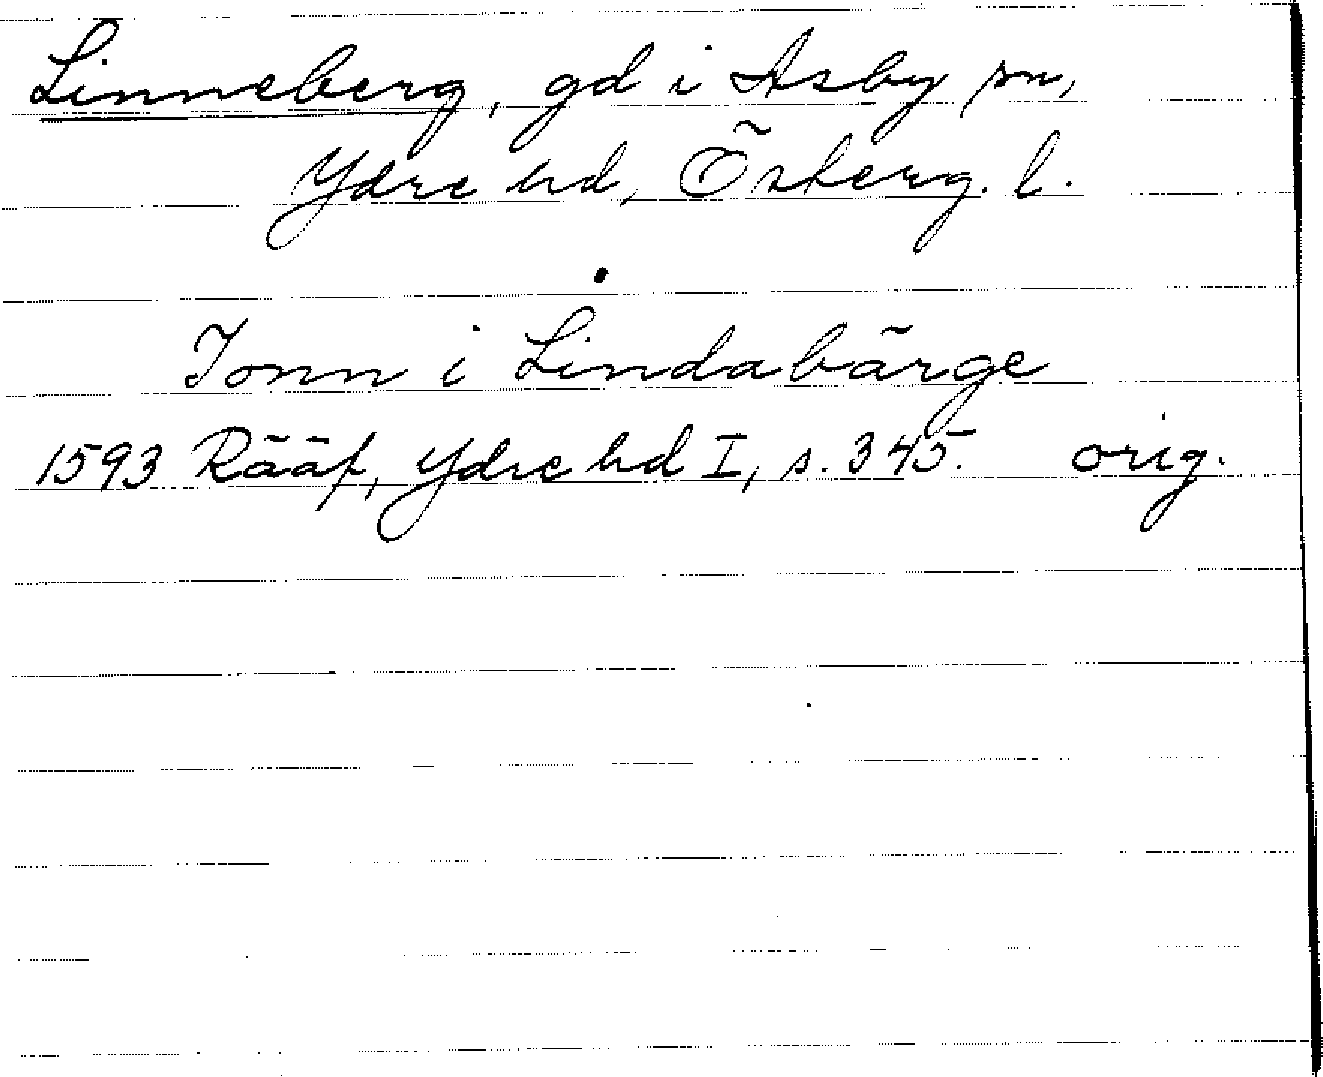 Linneberg, gd i Asby sn,
Ydre hd, Österg. l.
Jonn i Lindabärge
1593 Rääf, Ydre hd I, s. 345. orig.